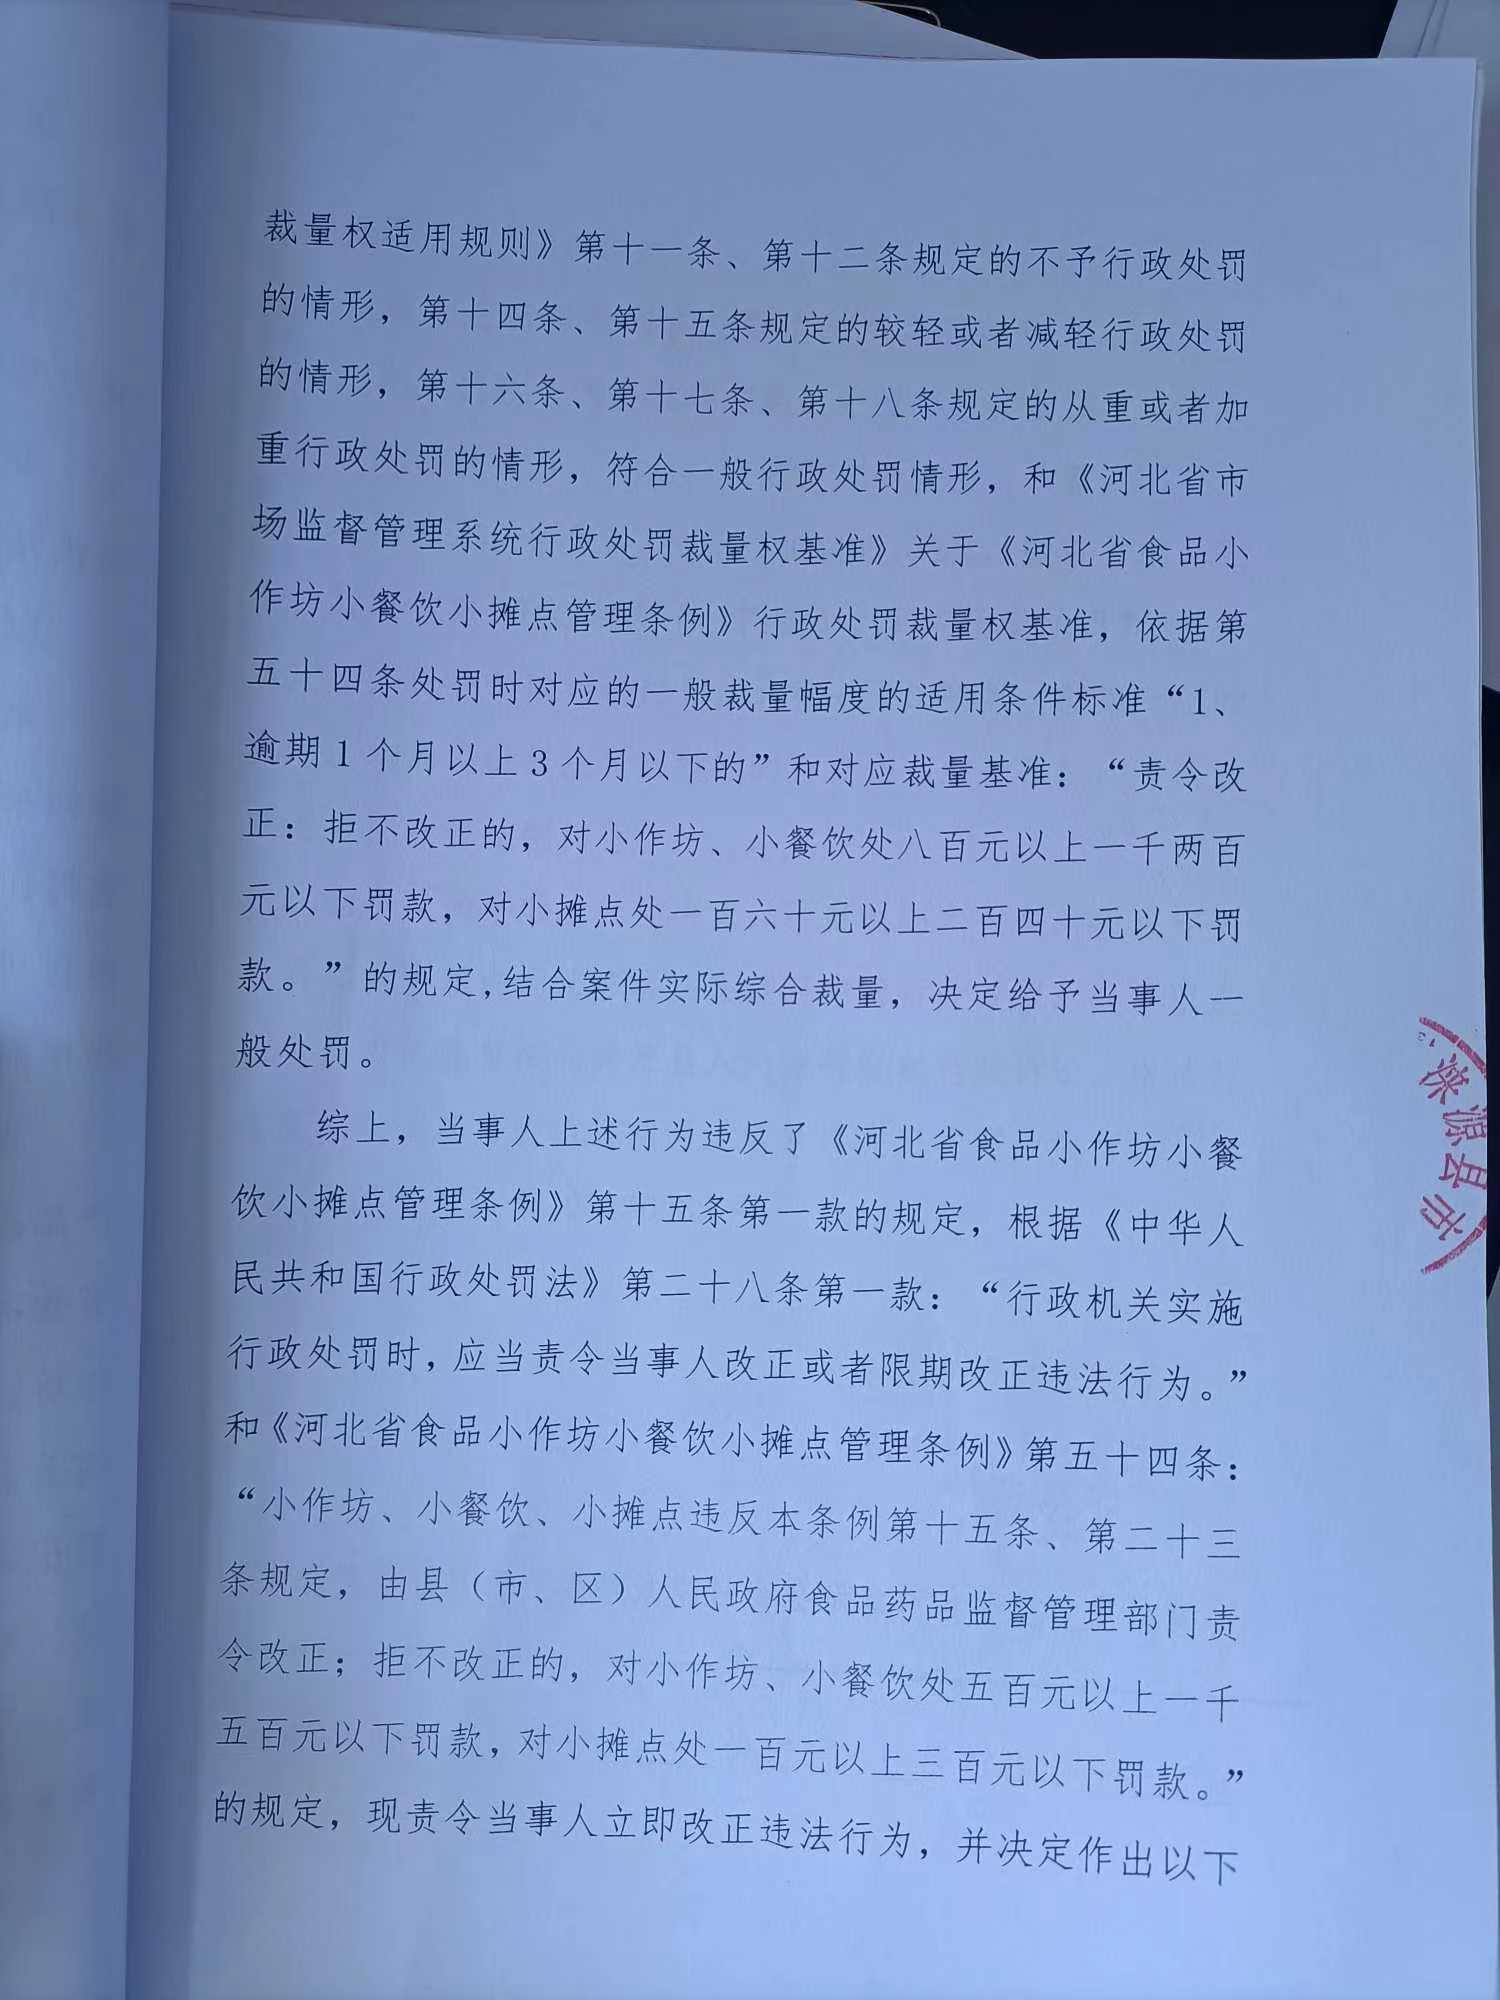 裁量权适用规则》第十一条、第十二条规定的不予行政处罚
的情形，第十四条、第十五条规定的较轻或者减轻行政处罚
的情形，第十六条、第十七条、第十八条规定的从重或者加
重行政处罚的情形，符合一般行政处罚情形，和《河北省市
场监督管理系统行政处罚裁量权基准》关于《河北省食品小
作坊小餐饮小摊点管理条例》行政处罚裁量权基准，依据第
五十四条处罚时对应的一般裁量幅度的适用条件标准“1、
逾期1个月以上3个月以下的”和对应裁量基准：“责令改
正：拒不改正的，对小作坊、小餐饮处八百元以上一千两百
元以下罚款，对小摊点处一百六十元以上二百四十元以下罚
款。”的规定,结合案件实际综合裁量，决定给予当事人一
般处罚。
综上，当事人上述行为违反了《河北省食品小作坊小餐
饮小摊点管理条例》第十五条第一款的规定，根据《中华人
民共和国行政处罚法》第二十八条第一款：“行政机关实施
行政处罚时，应当责令当事人改正或者限期改正违法行为。”
和《河北省食品小作坊小餐饮小摊点管理条例》第五十四条：
“小作坊、小餐饮、小摊点违反本条例第十五条、第二十三
条规定，由县（市、区）人民政府食品药品监督管理部门责
令改正；拒不改正的，对小作坊、小餐饮处五百元以上一千
五百元以下罚款，对小摊点处一百元以上三百元以下罚款。”
的规定，现责令当事人立即改正违法行为，并决定作出以下
涞源县市
13